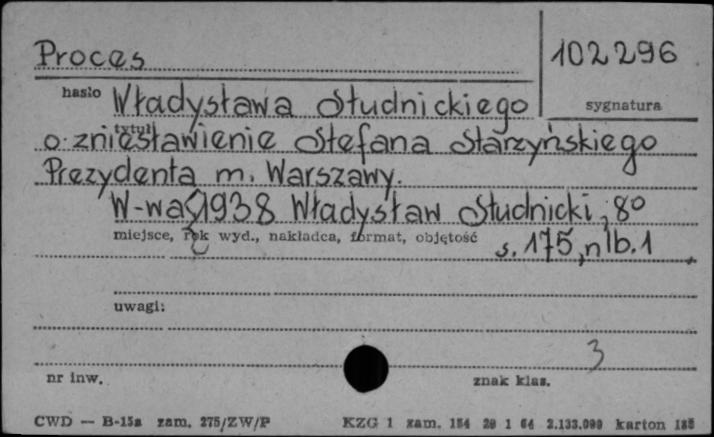 Proces
102296
hasło Władysława Studnickiego
sygnatura
tytuł
o zniesławienie Stefana Starzyńskiego
Prezydenta m. Warszawy.
W-wa 1938 Władysław Studnicki, 8°
miejsce, rok wyd., nakładca, format, objętość
s. 175, nlb. 1
uwagi:
3
nr inw.
znak klas.
CWD — B-15a zam. 275/ZW/P KZG 1 zam. 154 28 1 64 2.133.099 karton